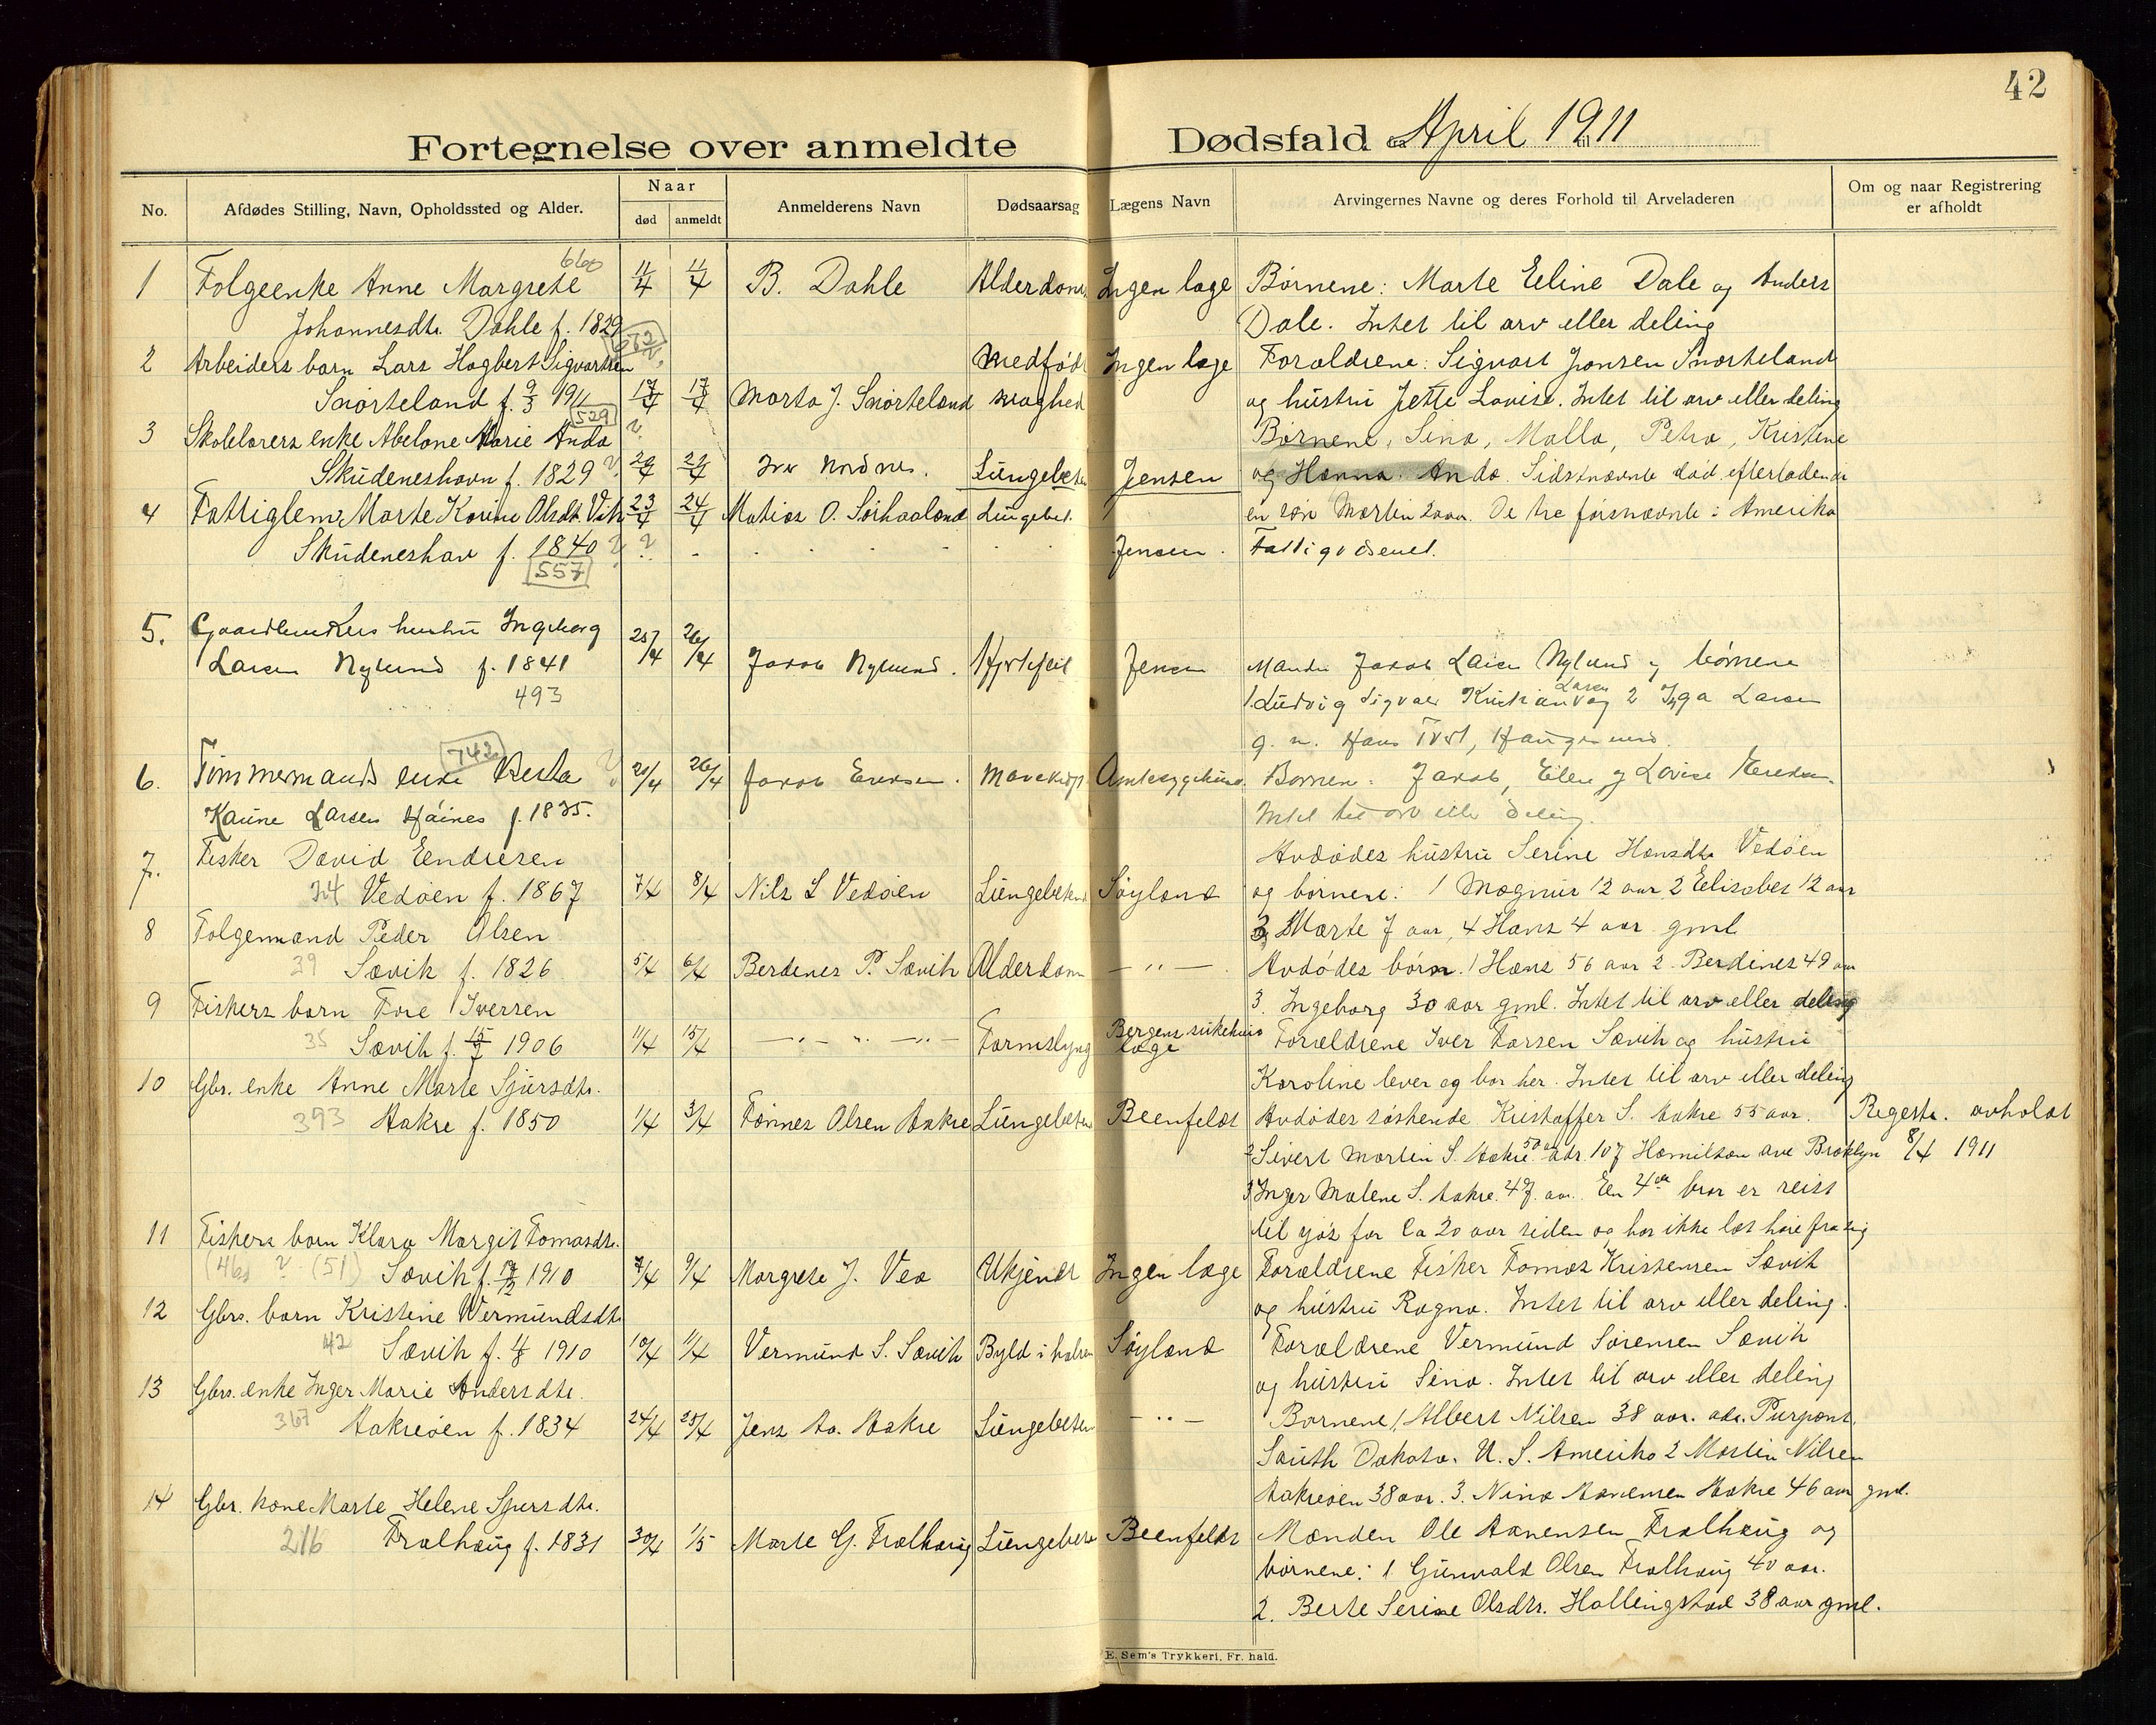 42
Fortegnelse over anmeldte Dødsfald fra April 1911 til
No. Afdødes Stilling, Navn, Opholdssted og Alder. Naar død anmeldt Anmelderens Navn Dødsaarsag Lægens Navn Arvingernes Navne og deres Forhold til Arveladeren Om og naar Registrering er afholdt
660
1 Folgeenke Anne Margrete 11/4 11/4 B. Dahle Alderdoms Ingen læge Børnene: Marte Eeline Dale og Anders
Johannesdtr. Dahle f. 1829 Dale. Intet til arv eller deling
2 Arbeiders barn Lars Hagbert Sigvartsen Medfødt Ingen læge Forældrene: Sigvart Jonsen Snørteland
Snørteland f. 9/3 1911 17/4 17/4 Marta J. Snørteland svaghed og hustru Jette Lovise. Intet til arv eller deling
529
3 Skolelærers enke Abelone Marie Anda ? Børnene, Sina, Malla, Petra, Kristine
Skudeneshavn f. 1829 ? 20/4 22/4 Iver Nordnes. Lungebet. Jensen og Hanna Anda. Sidstnævnte død efterladende
4 Fattiglem Marte Karine Olsdt. Vik 23/4 24/4 Matias O. Sørhaaland Lungebet. en søn Martin 2 aar. De tre førsnævnte i Amerika
Skudeneshav f. 1840 ? ? Jensen. Fattigvæsenet.
557
5. Gaardbrukers hustru Ingeborg
Larsen Nylund f. 1841 25/4 26/4 Jakob Nylund. Hjertefeil Jensen Manden Jakob Larsen Nylund og børnene
493 1. Ludvig Sigvald Kristian Larsen og 2 Inga Larsen
g. m. Hans Tvet, Haugesund.
742
6. Tømmermands enke Berta ? 20/4 26/4 Jakob Eriksen. Mavekræft Amtssygehus. Børnene: Jakob, Elen og Lovise Eriksen.
Karine Larsen Høines f. 1835. Intet til arv eller deling.
7. Fisker David Eendresen Avdødes hustru Serine Hansdtr Vedøen
24 Vedøen f. 1867 7/4 8/4 Nils L Vedøen Lungebeten Søyland og børnene: 1 Magnus 12 aar 2 Eelisabet 12 aar
3 Marte 7 aar, 4 Hans 4 aar gml
8 Folgemand Peder Olsen
39 Sævik f. 1826 5/4 6/4 Berdenes P. Sævik Alderdom — " — Avdødes børn. 1 Hans 56 aar 2. Berdines 49 aar
3. Ingeborg 30 aar gml. Intet til arv eller deling
9 Fiskers barn Tore Iversen
35 Sævik f. 15/7 1906 11/4 15/4 — " — " — " — Tarmslyng Bergens sukehus læge Forældrene Iver Torsen Sævik og hustru
Karoline lever og bor her. Intet til arv eller deling
10 Gbr. enke Anne Marte Sjursdtr.
393 Aakre f. 1850 1/4 3/4 Tønnes Olsen Aakre Lungebeten Beenfeldt Avdødes søskende Kristoffer S. Aakre 55 aar. Regestr. avholdt
2 Sivert Martin S. Aakre 50 aar adr. 107 Hamilton ave Broklyn 8/4 1911
3 Inger Malene S. Aakre. 47 aar. En 4de bror er reist
til sjøs for ca 20 aar siden og har ikke lat høre fra sig
11 Fiskers barn Klara Margit Tomasdtr.
(46) ? (51) Sævik f. 19/12 1910 7/4 9/4 Margrete J. Vea Ukjendt Ingen læge Forældrene Fisker Tomas Kristensen Sævik
og hustru Ragna. Intet til arv eller deling.
12 Gbrs. barn Kristine Vermundsdtr
42 Sævik f. 4/8 1910 10/4 11/4 Vermund S. Sævik Byld i halsen Søyland Forældrene Vermund Sørensen Sævik
og hustru Sina. Intet til arv eller deling
13 Gbrs. enke Inger Marie Andersdtr.
367 Aakreøen f. 1834 24/4 25/4 Jens Aa. Aakre Lungebeten — " — Børnene 1. Albert Nilsen 38 aar. adr. Purpont.
South Dakota. U. S. Amerika 2 Martin Nilsen
Aakreøen 38 aar. 3. Nina Aanensen Aakre 46 aar gml.
14 Gbr. kone Marte Helene Sjursdtr.
216 Trælhaug f. 1831 30/4 1/5 Marte G. Trælhaug Lungebete Beenfeldt Manden Ole Aanensen Trælhaug og
børnene: 1 Gunvald Olsen Trælhaug 40 aar.
2. Berte Serine Olsdtr. Hallingstad 38 aar gml.
E. Sem's Trykkeri, Fr. hald.